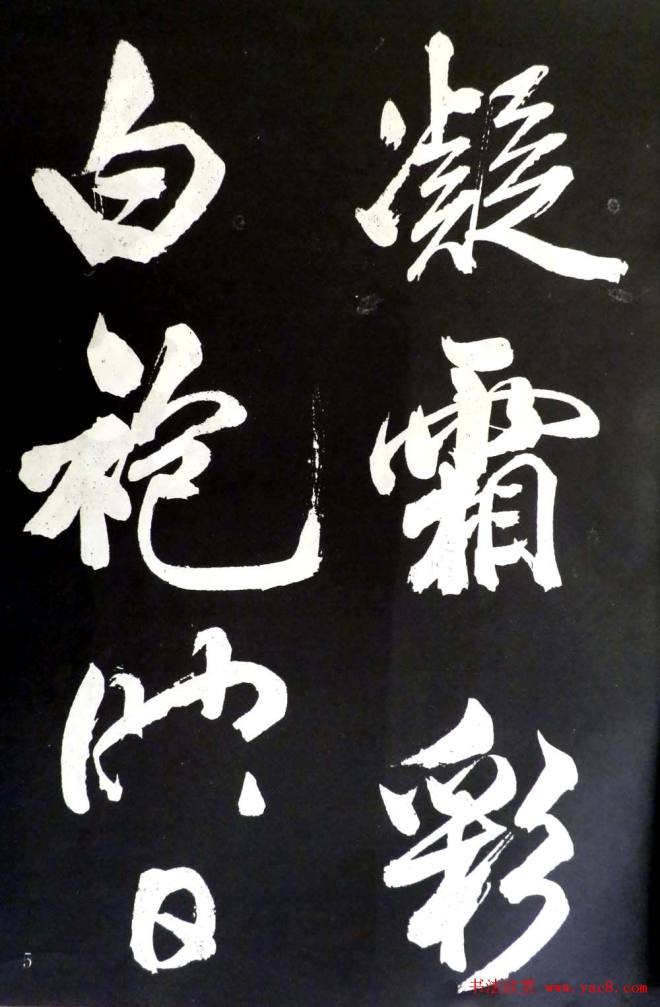 凝霜彩
白袍映日
5
书法欣赏 www.yac8.com